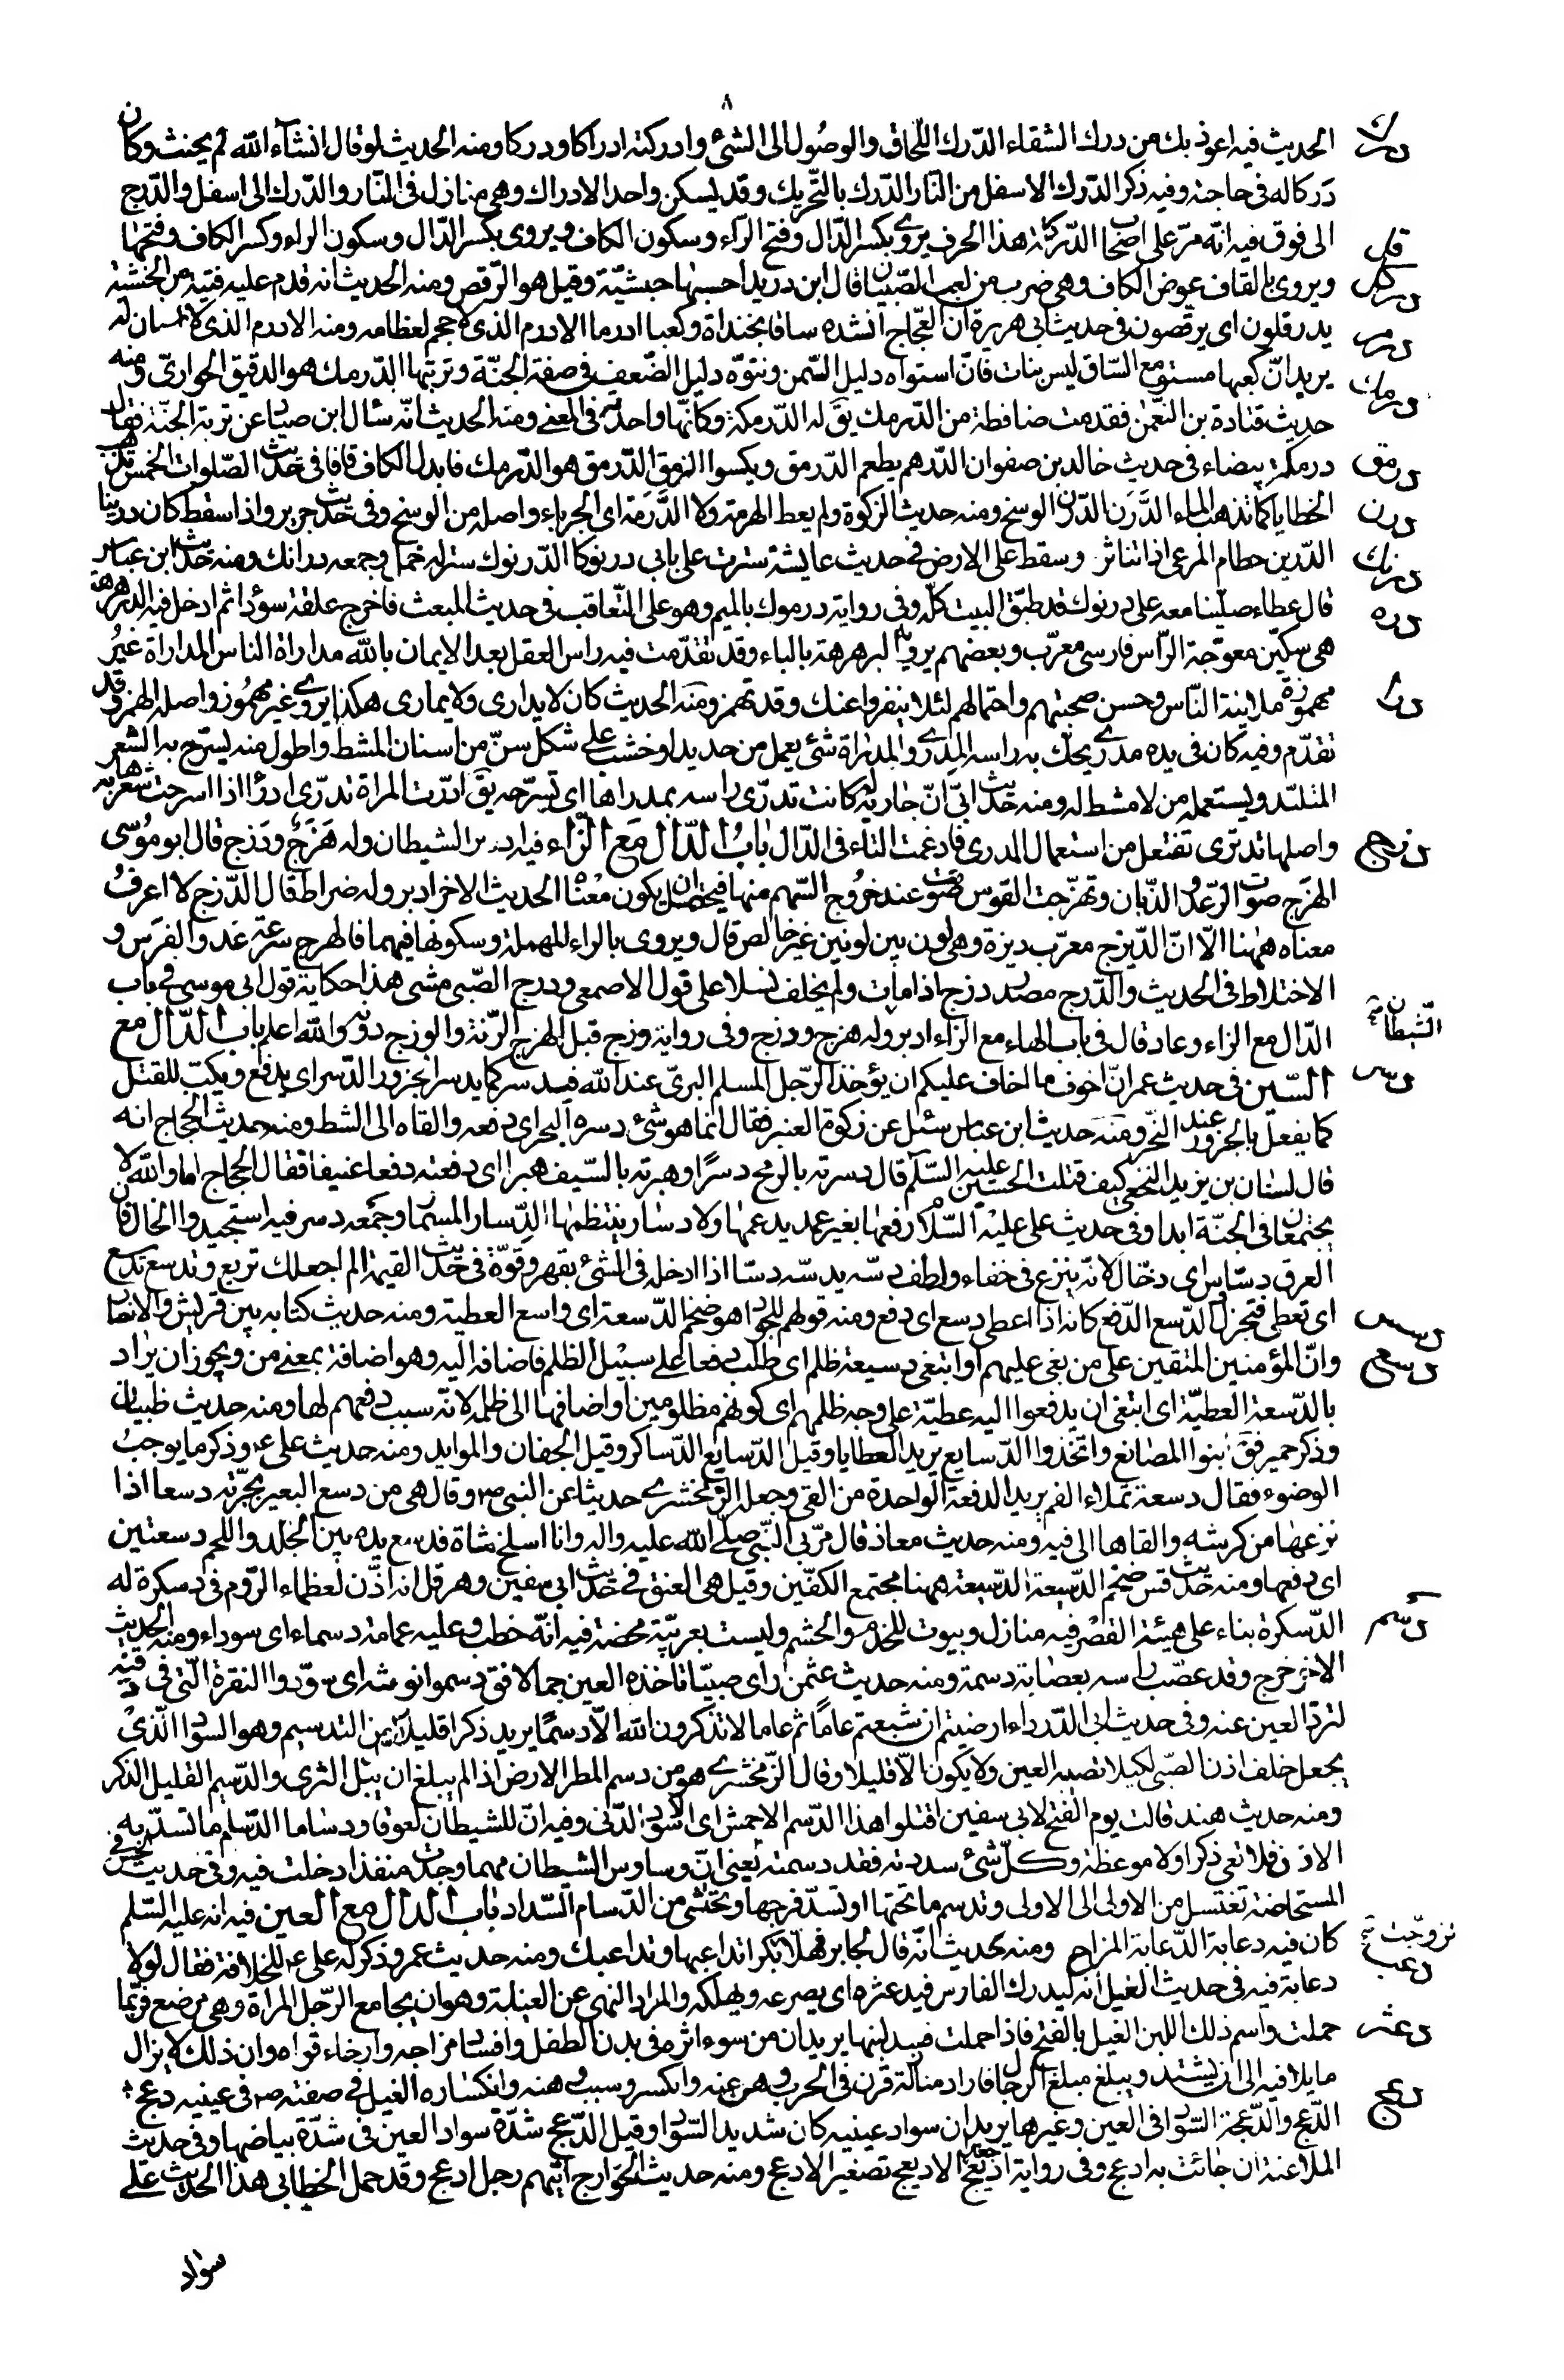 ٨
درك
الحديث فيه اعوذ بك من درك الشقاء الدّرك اللّحاق والوصُول الى الشئ وادركته ادراكا ودركا ومنه الحديث لو قال انشآء الله لم يحنث وكان
دَركا له فى حاجته وفيه ذكر الدّرك الاسفل من النّار الدّرك بالتّحريك وقد يسكن واحد الادراك وهى منازل فى النّار والدّرك الى اسفل والدّرج
الى فوق فيه انّه مرّ على اصحاب الدّركلة هذا الحرف يروى بكسر الدّال وفتح الرّاء وسكون الكاف ويروى بكسر الدّال وسكون الراء وكسر الكاف وفتحها
دركل
ويروى بالقاف عوض الكاف وهى ضرب من لعب الصّبيان قال ابن دريد احسبها حبشيّة وقيل هو الرّقص ومنه الحديث انه قدم عليه فتية من الحبشة
درم
يدرقلون اى يرقصون فى حديث ابى هريرة ان العجّاج انشده ساقا بخنداة وكعبا ادرما الادرم الذى لا حجم لعظامه ومنه الادرم الذى لا اسنان له
درمك
يريد انّ كعبها مستو مع السّاق ليس بنات فانّ استواه دليل السّمن ونتوّه دليل الضّعف فى صفة الجنّة وتربتها الدّرمك هو الدقيق الحوارىّ ومنه
حديث قتادة بن النعمٰن فقدمت ضافطة من الدّرمك يقَ له الدّرمكة وكانّها واحدته فى المعنى ومنه الحديث انّه سأل ابن صياد عن تربة الجنّة فقال
درمق
درمكة بيضاء فى حديث خالد بن صفوان الدّرهم يطعم الدّرمق ويكسوا النرمق الدّرمق هو الدّرمك فابدل الكاف قافا فى حديث الصّلوات الخمس تذهب
درن
الخطايا كما تذهب الماء الدَّرَن الدّرن الوسخ ومنه حديث الزكوة ولم يعط الهرمة ولا الدَّرِنة اى الجرباء واصله من الوسخ وفى حديث جرير واذا سقط كان درينا
درنك
الدّرين حطام المرعى اذا تناثر وسقط على الارض فى حديث عايشة سترت على بابى درنوكا الدّرنوك ستر له خمل وجمعه درانك ومنه حديث ابن عباس
دره
قال عطاء صلينا معه على درنوك قد طبّق البيت كلّه وفى رواية درموك بالميم وهو على التّعاقب فى حديث المبعث فاخرج علقة سوداء ثم ادخل فيه الدّرهرهة
هى سكّين معوّجة الرّاس فارسى معرّب وبعضهم يرويه البرهرهة بالباء وقد تقدّمت فيه راس العقل بعد الايمان بالله مداراة الناس المداراة غيرُ
درا
مهموزة ملاينة النّاس وحسن صحبتهم واحتمالهم لئلا ينفروا عنك وقد تهمز ومنه الحديث كان لا يدارى ولا يمارى هكذا يروى غير مهمُوز واصله الهمز وقد
تقدّم وفيه كان فى يده مدرى يحكّ به راسه المِدرى والمدراة شئ يعمل من حديد او خشب على شكل سنّ من اسنان المشط واطول منه يسرّح به الشعر
المتلبّد ويستعمله من لا مشط له ومنه حديث ابىّ انّ جارية له كانت تدّرى راسه بمدراها اى تسرّحه يقَ ادّرت المراة تدّرى ادرّاء اذا سرحت شعرها به
درج
واصلها تدترى تفتعل من استعمال المدرى فادغمت التاء فى الدّال بابُ الدّال مَع الزّاء فيه ادبر الشيطان وله هَزَج ودَزَج قال ابو مُوسٰى
الهزَج صوت الرّعد والذّبان وتهزّجت القوس صوّتت عند خروج السّهم منها فيحتمل ان يكون معناه معنى الحديث الاخر ادبر وله ضراط قال الدّزج لا اعرفُ
معناه ههُنا الّا انّ الدّيزج معرّب ديزة وهى لون بين لونين غير خالص قال ويروى بالراء المهملة وسكونها فيهما فالهرج سرعة عَدو الفرَس و
الاختلاط فى الحديث والدّرج مصدر درج اذا مات ولم يخلف نسلا على قول الاصمعى ودرج الصّبى مشى هذا حكاية قول ابى موسى فى باب
الشّيطان
الدّال مع الزاء وعاد قال فى باب الهاء مع الزاء ادبر وله هزج ودزج وفى رواية وزج قبل الهزج الرّنة والوزج دونه والله اعلم باب الدّال مع
دسر
السّين فى حديث عمر انّ اخوف ما اخاف عليكم ان يؤخذ الرجل المسلم البرئ عند الله فيدسر كما يدسر الجزور الدّسر اى يدفع ويكبّ للقتل
كما يفعل بالجزور عند النّحر ومنه حديث ابن عباس سئل عن زكوة العنبر فقال انما هو شئ دسره البحر اى دفعه والقاه الى الشط ومنه حديث الحجاج انه
قال لسنان بن يزيد النخعى كيف قتلت الحسين عليه السّلٰم قال دسرته بالرمح دسرًا وهبرته بالسّيف هبرا اى دفعته دفعا عنيفا فقال الحجاج اما والله لا
يجتمعان فى الجنّة ابدا وفى حديث على عليه السّلام رفعها بغير عمد يدعمها ولا دسار ينتظمها الدّسار المسمار وجمعه دسر فيه استجيدوا الخال فان
دسس
العرق دسّاس اى دخّال لانّه ينزع فى خفاء ولطف دسّه يدسّه دسّا اذا ادخله فى الشئ بقهر وقوّة فى حديث القيٰمة الم اجعلك تربع وتدسع تدسع
اى تعطى فتجزل الدّسع الدّفع كانه اذا اعطى دسع اى دفع ومنه قولهم للجواد هو ضخم الدّسعة اى واسع العطية ومنه حديث كتابه بين قريش والانصار
دسع
وانّ المؤمنين المتقين على من بغى عليهم او ابتغى دسيعة ظلم اى طلب دفعا على سبيل الظلم فاضافه اليه وهو اضافة بمعنى من ويجوز ان يراد
بالدّسعة العطيّة اى ابتغى ان يدفعوا اليه عطيّة على وجه ظلمهم اى كونهم مظلومين او اضافها الى ظلمه لانّه سبب دفعهم لها ومنه حديث ظبيان
وذكر حمير فقَ بنوا المصانع واتخذوا الدّسايع يريد العطايا وقيل الدّسايع الدّساكر وقيل الجفان والموايد ومنه حديث على ع وذكر ما يوجبُ
الوضوء فقال دسعة تملاء الفم يريد الدفعة الواحدة من القئ وجعله الزّمخشرى حديثا عن النبى ص وقال هى من دسع البعير بجرّته دسعا اذا
نزعها من كرشه والقاها الى فيه ومنه حديث معاذ قال مرّ بى النّبى صلّى الله عليه واله وانا اسلخ شاة فدسع يده بين الجلد واللحم دسعتين
اى دفعها ومنه حديث قس ضخم الدّسيعة الدّسيعة ههنا مجتمع الكتفين وقيل هى العنق فى حديث ابى سفين وهرقل انه اذّن لعظماء الرّوم فى دسكرة له
دسم
الدّسكرة بناء على هيئة القصر فيه منازل وبيوت للخدم والحشم وليست بعربيّة محضة فيه انّه خطب وعليه عمامة دسماء اى سوداء ومنه الحديث
الاخر خرج وقد عصّب راسه بعصابة دسمة ومنه حديث عثمٰن راى صبيّا تاخذه العين جمالا فقَ دسموا نونته اى سوّدوا النقرة الّتى فى ذقنه
لتردّ العين عنه وفى حديث ابى الدّرداء ارضيتم ان شبعتم عامًا ثم عاما لا تذكرون الله الّا دسمًا يريد ذكرا قليلا من التدسيم وهو السواد الّذى
يجعل خلف اذن الصّبى لكيلا تصيبه العين ولا يكون الّا قليلا وقال الزّمخشرى هو من دسم المطر الارض اذا لم يبلغ ان يبلّ الثرى والدّسيم القليل الذكر
ومنه حديث هند قالت يوم الفتح لابى سفين اقتلوا هذا الدّسم الاحمش اى الاسود الدّنى وفيه انّ للشيطان لعوقا ودساما الدّسام ما تسدّ به
الاذن فلا تعى ذكرا ولا موعظة وكلّ شئ سددته فقد دسمته يعنى انّ وساوس الشيطان مهما وجدت منفذا دخلت فيه وفى حديث الحسن فى
المستحاضة تغتسل من الاولى الى الاولى وتدسم ما تحتها اى تسدّ فرجها وتحتشى من الدّسام السّداد باب الدال مع العين فيه انه عليه السّلم
تزوّجت
دعب
كان فيه دعابة الدّعابة المزاح ومنه حديث انّه قال لجابر فهلّا بكرا تداعبها وتداعبك ومنه حديث عمر وذكر له على ع للخلافة فقال لولا
دعابة فيه فى حديث الغيل انه ليدرك الفارس فيدعثره اى يصرعه ويهلكه والمراد النهى عن الغيلة وهو ان يجامع الرّجل المراة وهى مرضع فربّما
دعثر
حملت واسم ذلك اللبن الغيل بالفتح فاذا حملت فسد لبنها يريد ان من سوء اثره فى بدن الطفل وافساد مزاجه وارخاء قواه وان ذلك لا يزال
ماثلا فيه الى ان يشتد ويبلغ مبلغ الرجال فاذا اراد منازلة قرن فى الحرب وهن عنه وانكسر وسبب وهنه وانكساره الغيل فى صفته ص فى عينيه دعج
دعج
الدّعج والدّعجة السّواد فى العين وغيرها يريد ان سواد عينيه كان شديد السّواد وقيل الدّعج شدّة سواد العين فى شدّة بياضها وفى حديث
الملاعنة ان جائت به ادعج وفى رواية اديعج الاديعج تصغير الادعج ومنه حديث الخوارج ايتهم رجل ادعج وقد حمل الخطابى هذا الحديث على
سواد